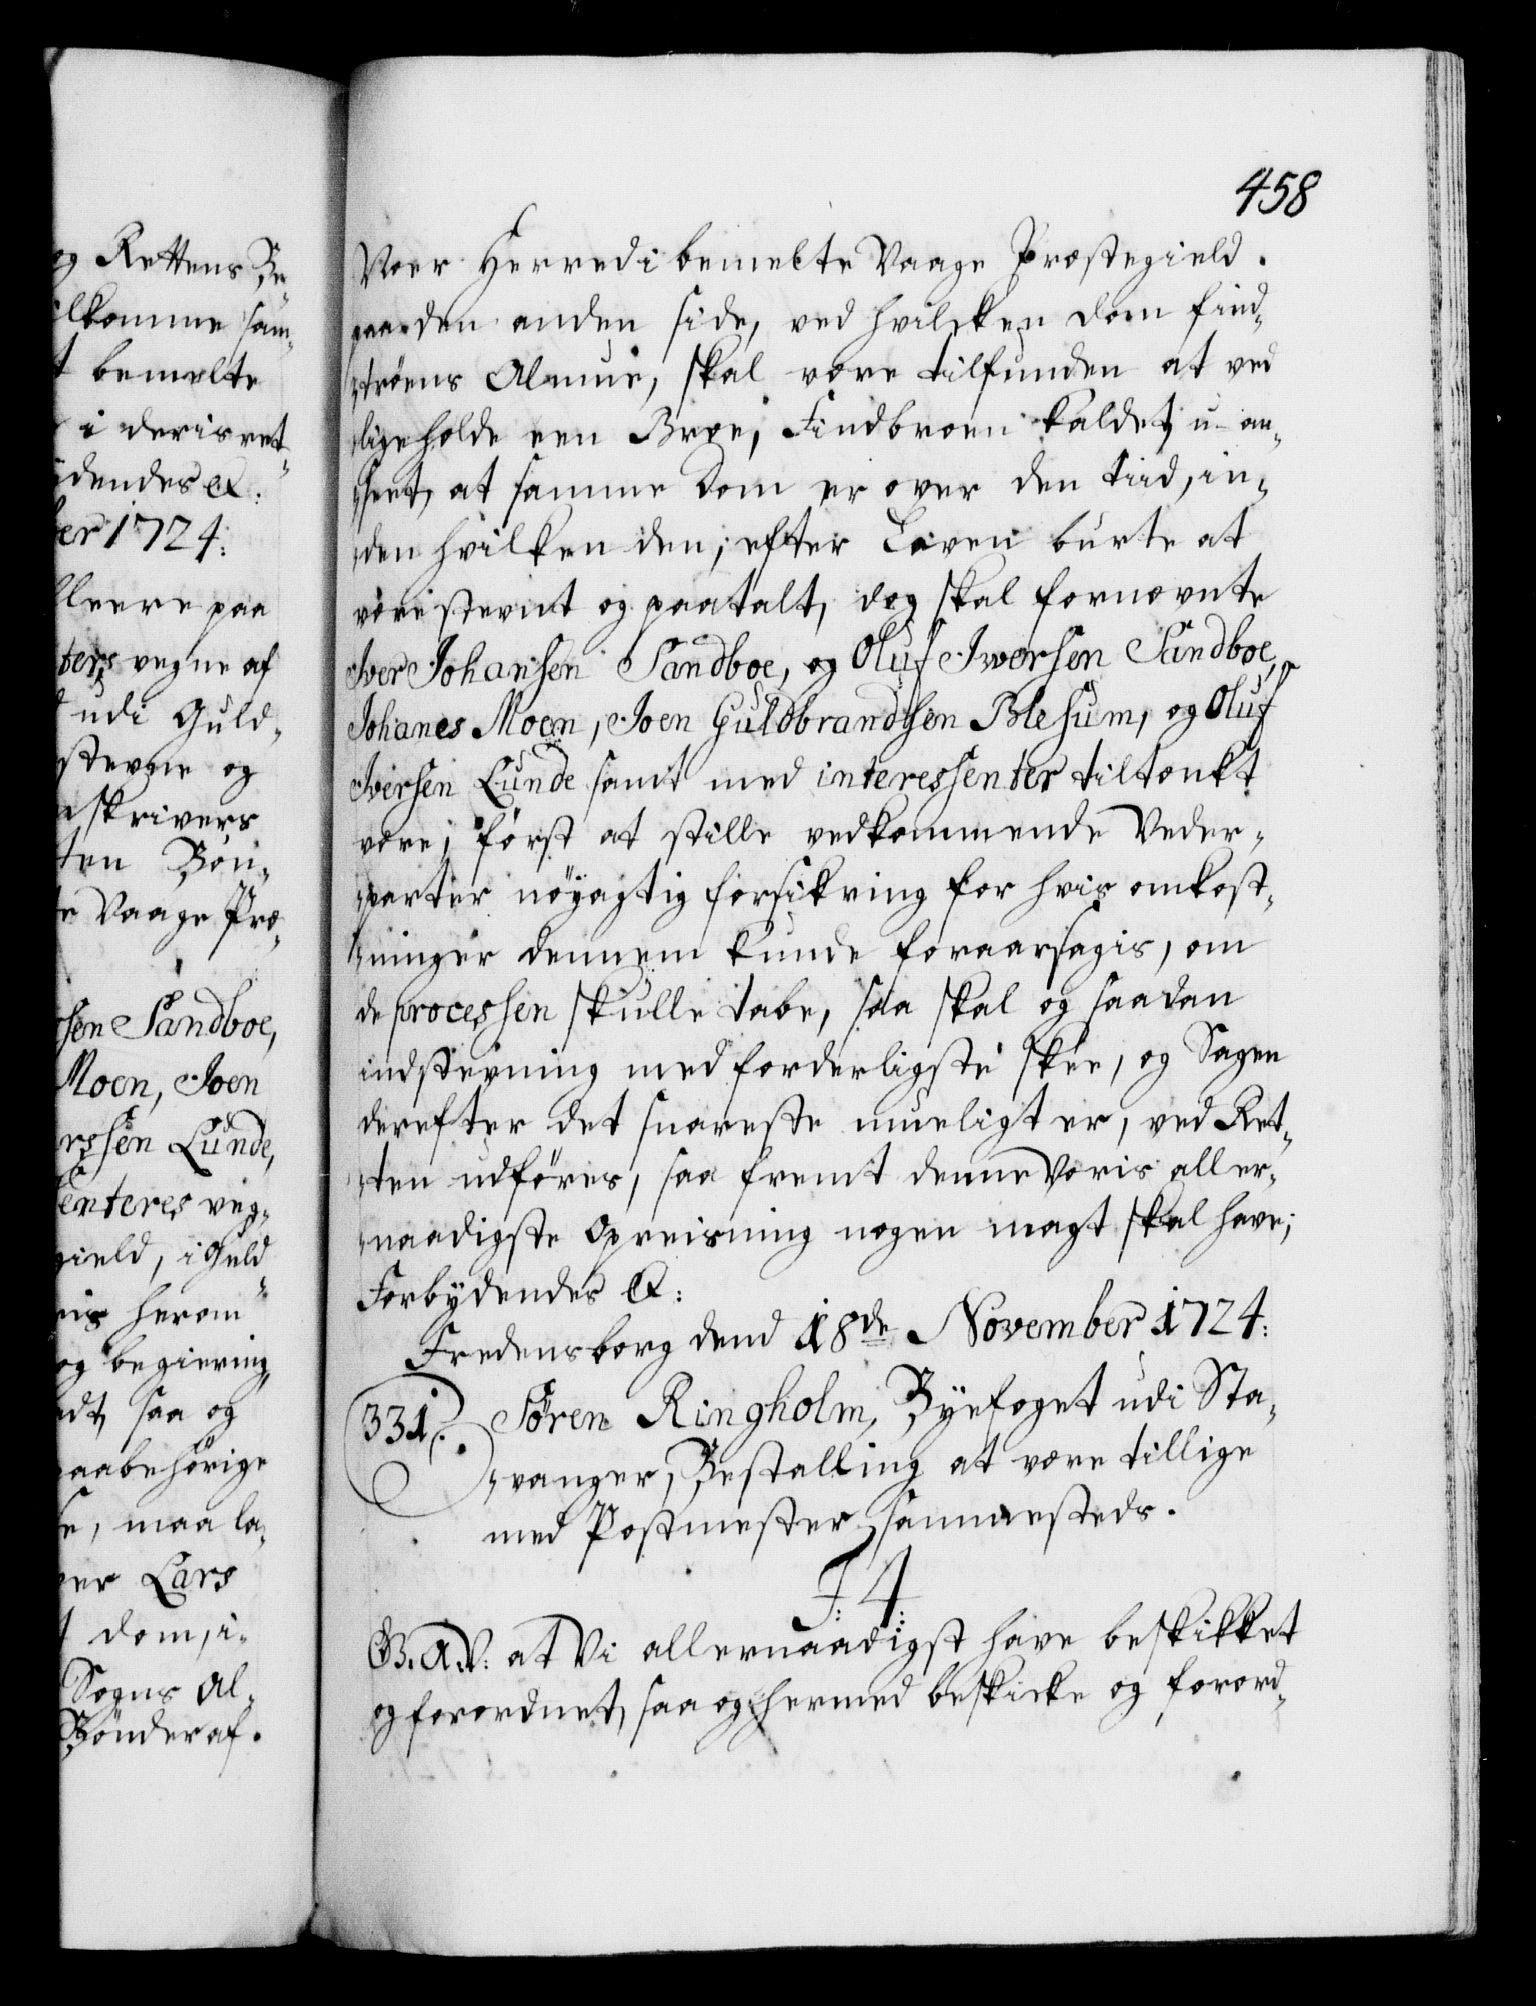 og Rettens Be„
ilkomme sam„
t bemelte
i deris ret„
ydendes &:
ber 1724:
fleere paa
ters vegne af
udi Guld„
stevne og
skrivers
ten Bön„
te Vaage Præ„
rsen Sandboe,
Moen, Joen
erssen Lunde,
enteres veg„
gield, i Guld„
ris herom
og begiering
edt, saa og
paabehörige
se, maa la„
ver Lars
t dom, i„
Sogns Al„
Bönder af.
458
Noer Herred i bemelte Vaage Præstegield.
paa den anden side, ved hvilcken dom find„
„tröens Almue, skal være tilfunden at ved
ligeholde een Broe, Findbroen kaldet, u-an„
„seet, at samme dom er over den tiid, in„
„den hvilken den, efter Loven burte at
være stevnt og paatalt, dog skal fornevnte
Iver Johansen Sandboe, og Oluf Iversen Sandboe,
Johanes Moen, Joen Guldbrandsen Blesum, og Oluf
Iversen Lunde samt med interessenter tiltenkt
være, först at stille vedkommende Veder„
„parter nöyagtig forsikring for hvis omkost„
„ninger dennem kunde foraarsagis, om
de processen skulle tabe, saa skal og saadan
indstevning med forderligste skee, og Sagen
derefter det snareste mueligt er, ved Ret„
„ten udföres, saa fremt denne Voris aller„
„naadigste Opreisning nogen magt skal have;
Forbydendes &:
Fredensborg dend 18de November 1724:
331. Sören Ringholm, Byefoget udi Sta„
„vanger, Bestalling at være tillige
med Postmester sammesteds.
F: 4:
G. A. V: at Vi allernaadigst have beskikket
og forordnet, saa og hermed beskicke og forord„